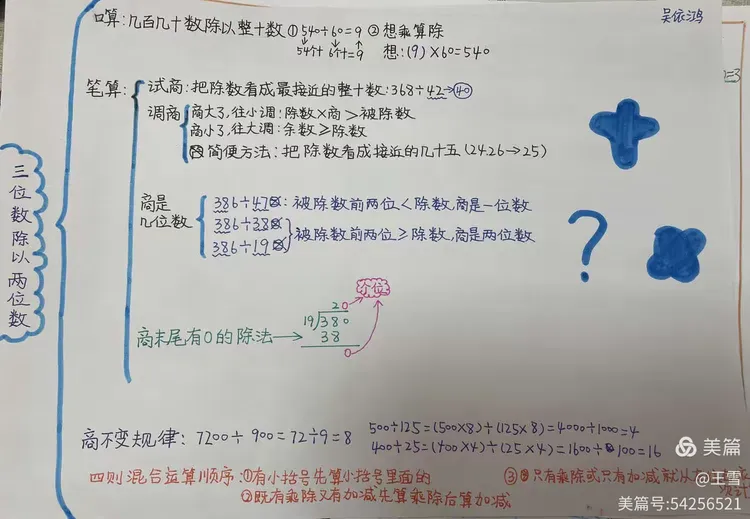 吴依鸿
口算:几百几十数除以整十数①540÷60=9 ②想乘算除
54个十 6个十=9 想:(9)×60=540
=3
笔算:
试商:把除数看成最接近的整十数:368÷42→40
调商
商大了,往小调:除数×商>被除数
商小了,往大调:余数≥除数
简便方法:把除数看成接近的几十五(24.26→25)
三位数除以两位数
商是几位数
386÷47:被除数前两位<除数,商是一位数
386÷38
386÷19
被除数前两位≥除数,商是两位数
?
个位
商末尾有0的除法→
20
19 380
38
0
商不变规律:7200÷900=72÷9=8
500÷125=(500×8)÷(125×8)=4000÷1000=4
400÷25=(400×4)÷(25×4)=1600÷100=16
四则混合运算顺序:①有小括号先算小括号里面的
②既有乘除又有加减先算乘除后算加减
③只有乘除或只有加减就从
美篇
@王雪
美篇号:54256521